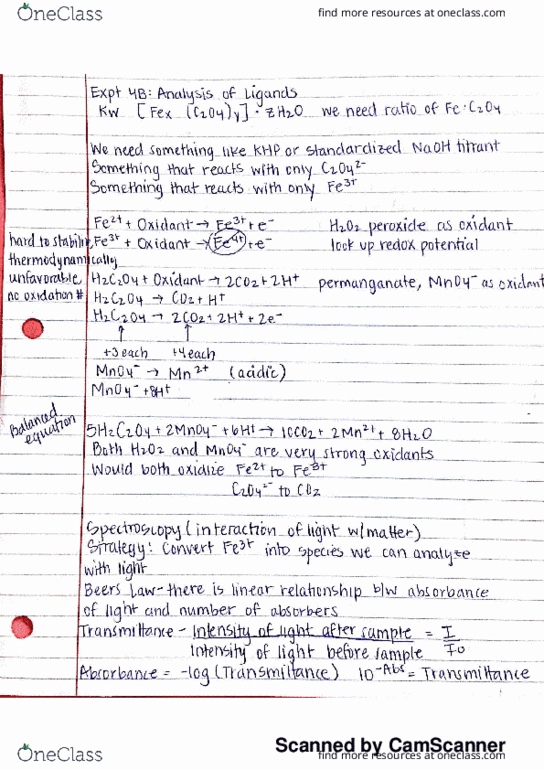 OneClass
find more resources at oneclass.com
Expt 4B: Analysis of Ligands
Kw [Fex (C2O4)y]· zH2O we need ratio of Fe:C2O4
We need something like KHP or standardized NaOH titrant
Something that reacts with only C2O4²⁻
Something that reacts with only Fe³⁺
Fe²⁺ + Oxidant → Fe³⁺ + e⁻ H2O2 peroxide as oxidant
hard to stabili Fe³⁺ + Oxidant -x Fe⁴⁺ + e⁻ look up redox potential
thermodynamically
unfavorable, H2C2O4 + Oxidant → 2CO2 + 2H⁺ permanganate, MnO4⁻ as oxidant
no oxidation # H2C2O4 → CO2 + H⁺
H2C2O4 → 2CO2 + 2H⁺ + 2e⁻
+3 each +4 each
MnO4⁻ → Mn²⁺ (acidic)
MnO4⁻ + 8H⁺
Balanced
equation
5H2C2O4 + 2MnO4⁻ + 6H⁺ → 10CO2 + 2Mn²⁺ + 8H2O
Both H2O2 and MnO4⁻ are very strong oxidants
Would both oxidize Fe²⁺ to Fe³⁺
C2O4²⁻ to CO2
Spectroscopy (interaction of light w/matter)
Strategy: Convert Fe³⁺ into species we can analyze
with light
Beers Law- there is linear relationship b/w absorbance
of light and number of absorbers
Transmittance - Intensity of light after sample = I
Intensity of light before sample I0
Absorbance = -log (Transmittance) 10^-Abs = Transmittance
Scanned by CamScanner
OneClass
find more resources at oneclass.com